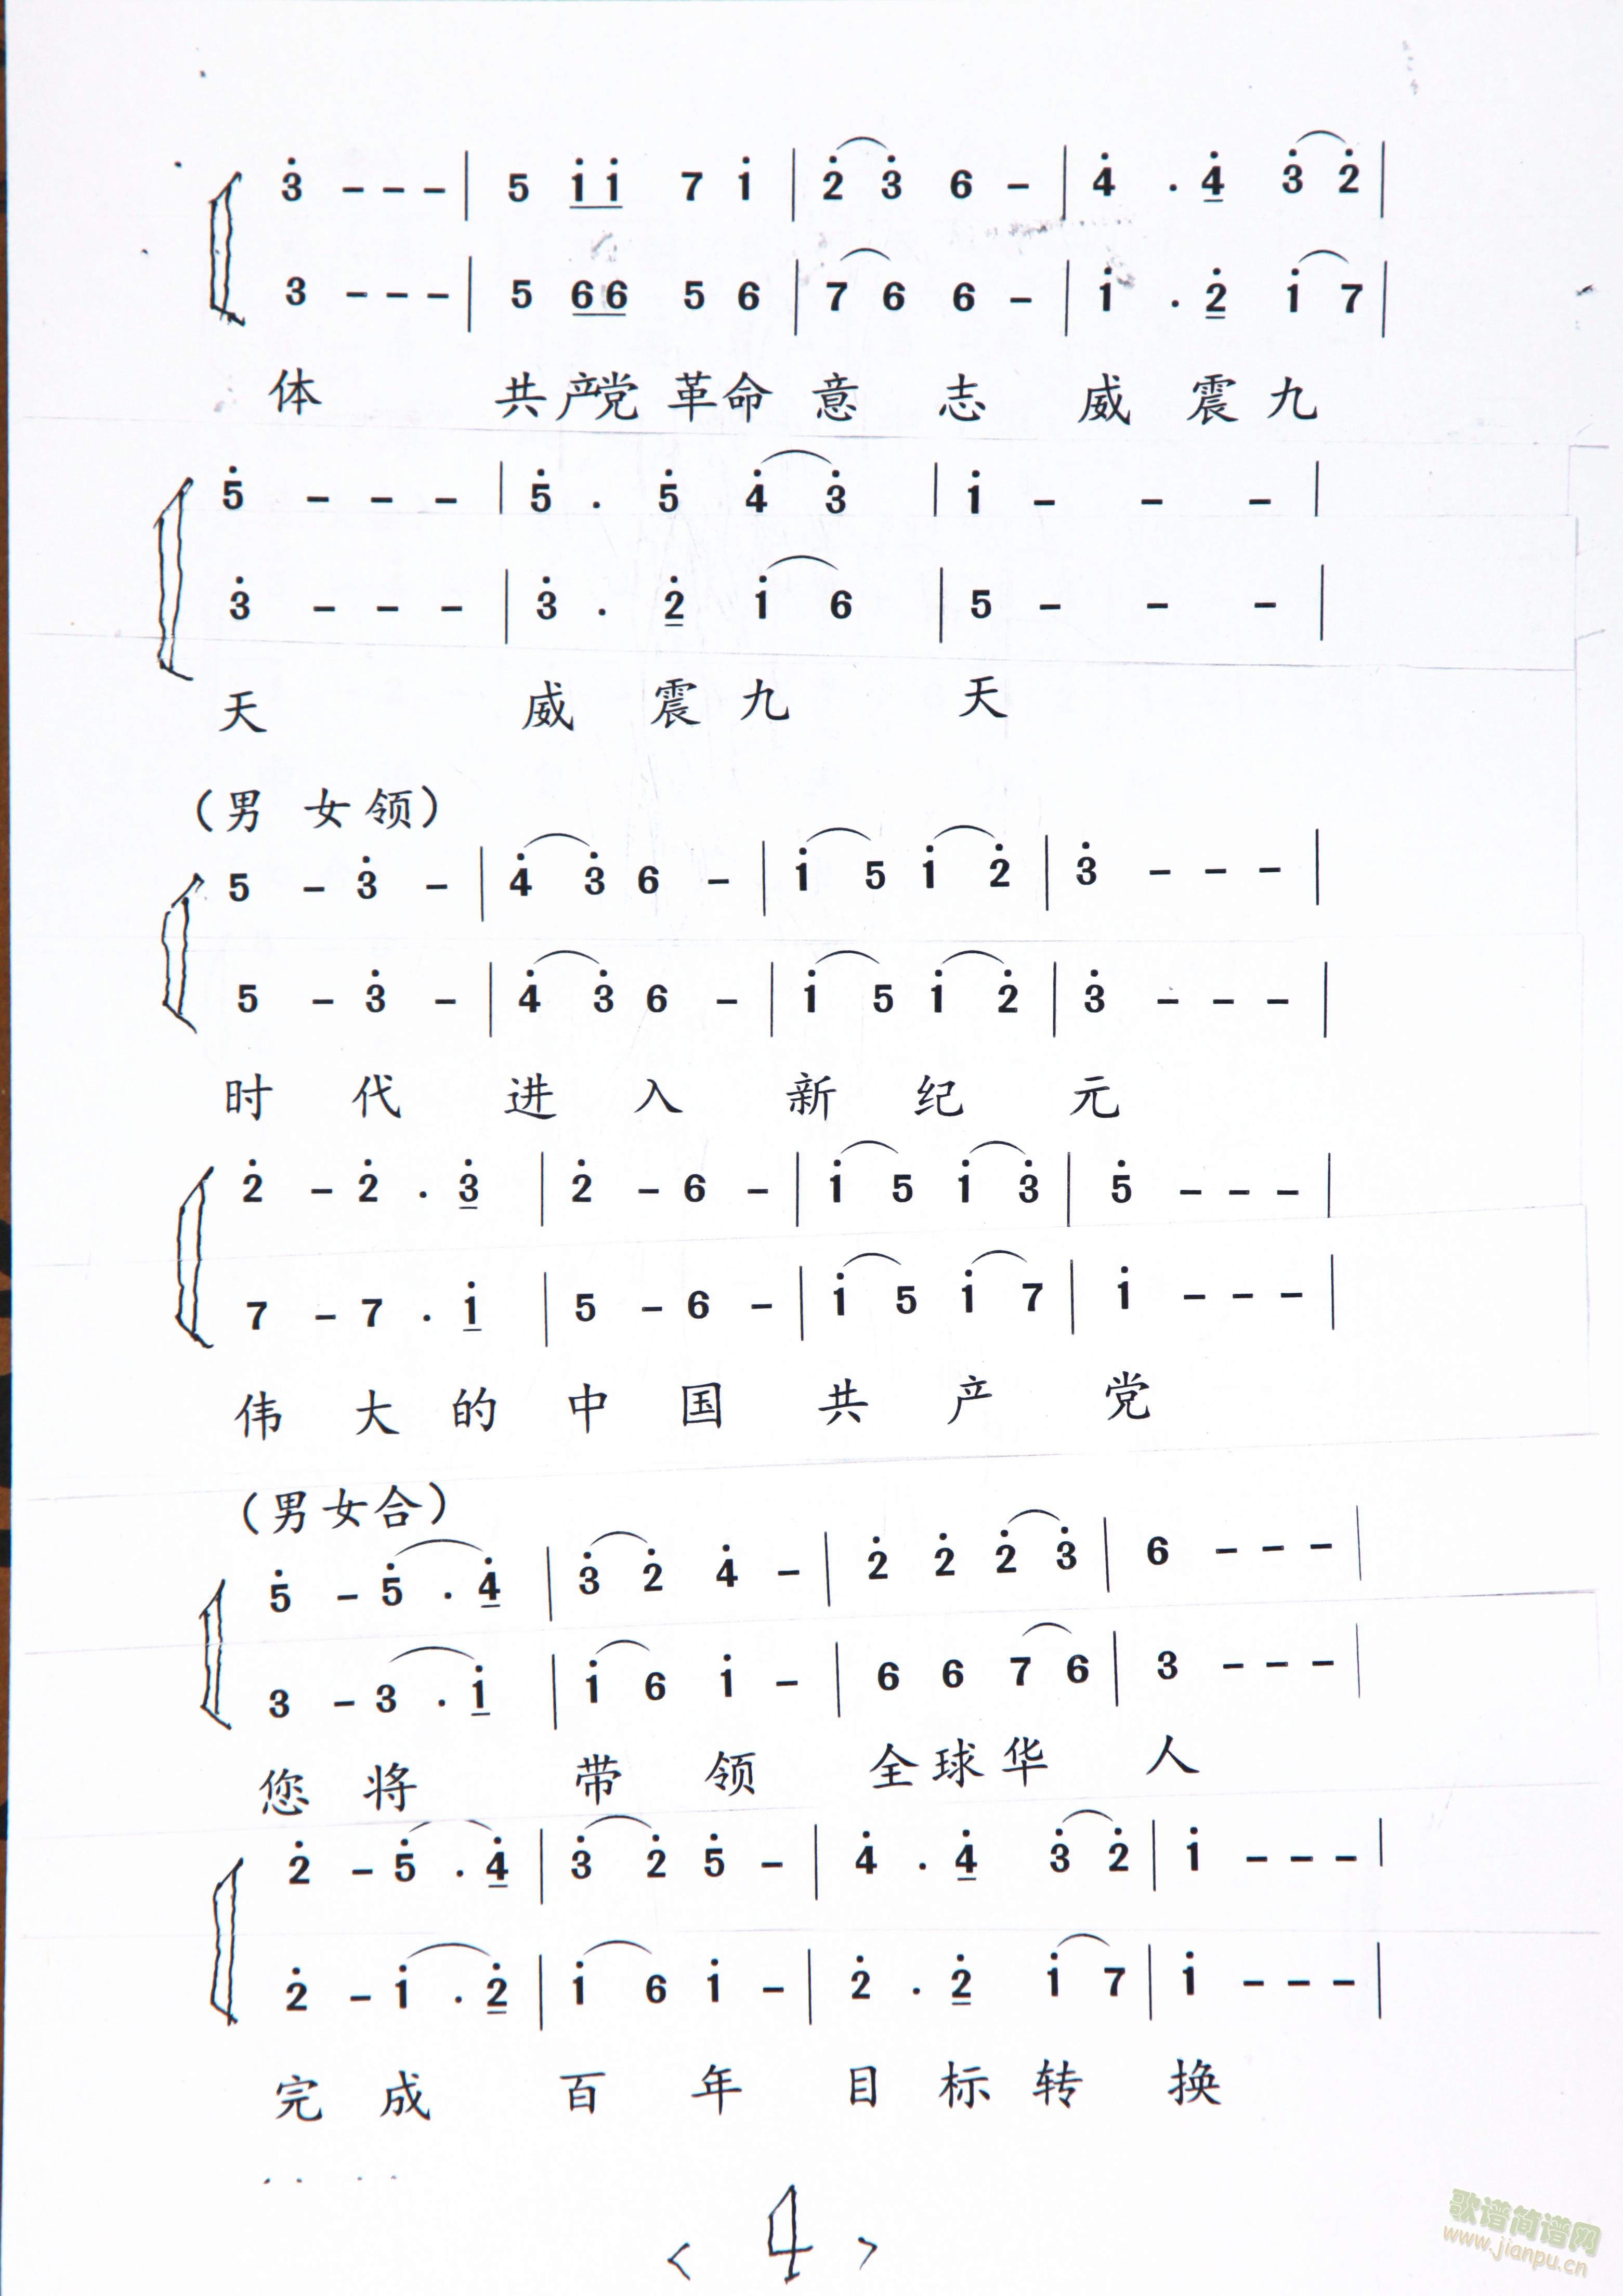 3̇ - - - | 5 1̇ 1̇ 7 1̇ | 2̇ 3̇ 6 - | 4̇ . 4̇ 3̇ 2̇ |
3 - - - | 5 6 6 5 6 | 7 6 6 - | 1̇ . 2̇ 1̇ 7 |
体 共产党 革命 意 志 威 震 九
5̇ - - - | 5̇ . 5̇ 4̇ 3̇ | 1̇ - - - |
3̇ - - - | 3̇ . 2̇ 1̇ 6 | 5 - - - |
天 威 震 九 天
(男 女 领)
5 - 3̇ - | 4̇ 3̇ 6 - | 1̇ 5 1̇ 2̇ | 3̇ - - - |
5 - 3̇ - | 4̇ 3̇ 6 - | 1̇ 5 1̇ 2̇ | 3̇ - - - |
时 代 进 入 新 纪 元
2̇ - 2̇ . 3̇ | 2̇ - 6 - | 1̇ 5 1̇ 3̇ | 5̇ - - - |
7 - 7 . 1̇ | 5 - 6 - | 1̇ 5 1̇ 7 | 1̇ - - - |
伟 大 的 中 国 共 产 党
(男女合)
5̇ - 5̇ . 4̇ | 3̇ 2̇ 4̇ - | 2̇ 2̇ 2̇ 3̇ | 6 - - - |
3 - 3 . 1̇ | 1̇ 6 1̇ - | 6 6 7 6 | 3 - - - |
您 将 带 领 全 球 华 人
2̇ - 5̇ . 4̇ | 3̇ 2̇ 5̇ - | 4̇ . 4̇ 3̇ 2̇ | 1̇ - - - |
2̇ - 1̇ . 2̇ | 1̇ 6 1̇ - | 2̇ . 2̇ 1̇ 7 | 1̇ - - - |
完 成 百 年 目 标 转 换
< 4 >
歌谱简谱网
www.jianpu.cn